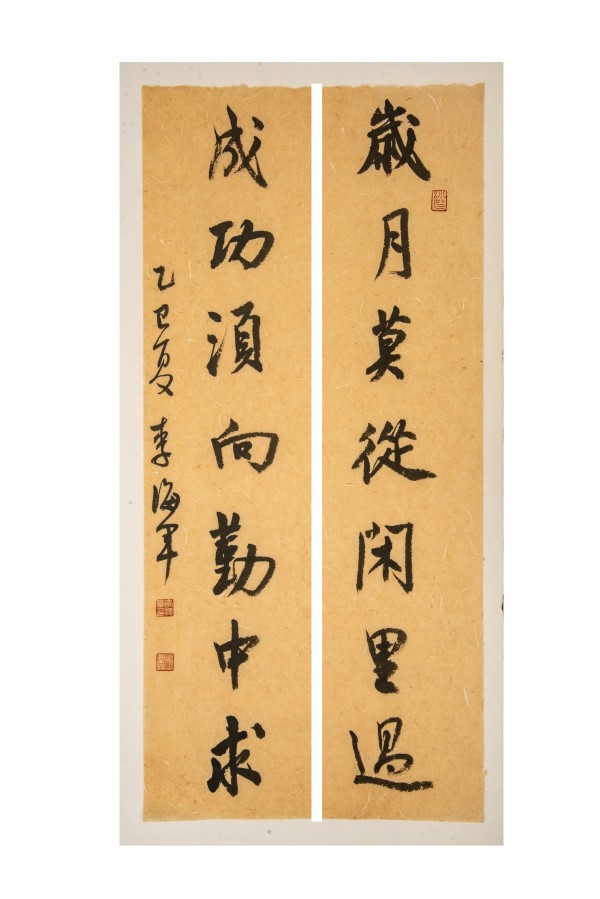 歲月莫從閑里過
成功須向勤中求
乙巳夏 李海軍